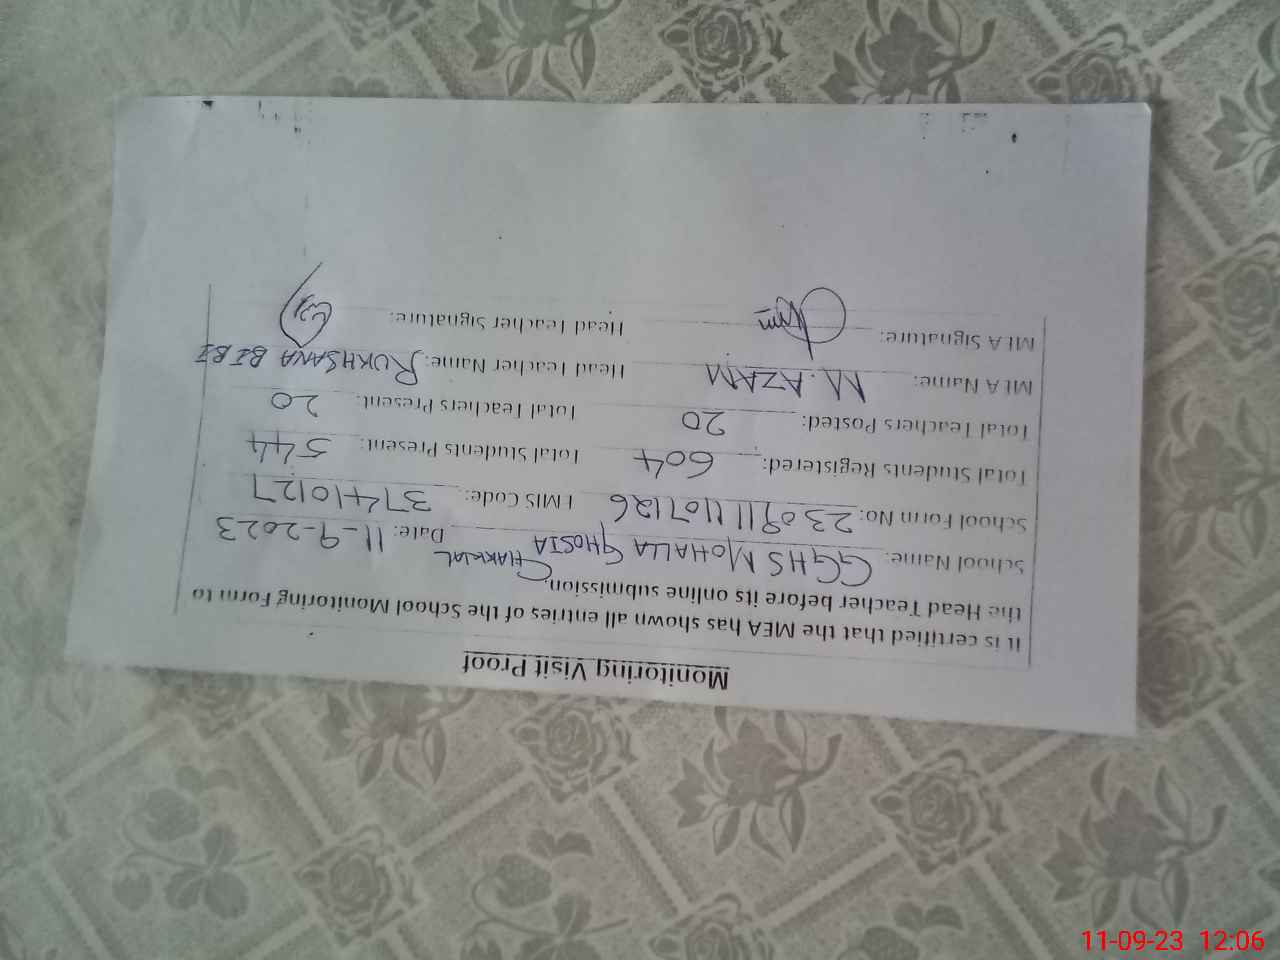 Monitoring Visit Proof
It is certified that the MEA has shown all entries of the School Monitoring Form to
the Head Teacher before its online submission.
School Name: GGHS MOHALLA GHOSIA CHAKWAL Date: 11-9-2023
School Form No: 230911107126 EMIS Code: 37410127
Total Students Registered: 604 Total Students Present: 544
Total Teachers Posted: 20 Total Teachers Present: 20
MEA Name: M. AZAM Head Teacher Name: RUKHSANA BIBI
MEA Signature: Head Teacher Signature:
11-09-23 12:06